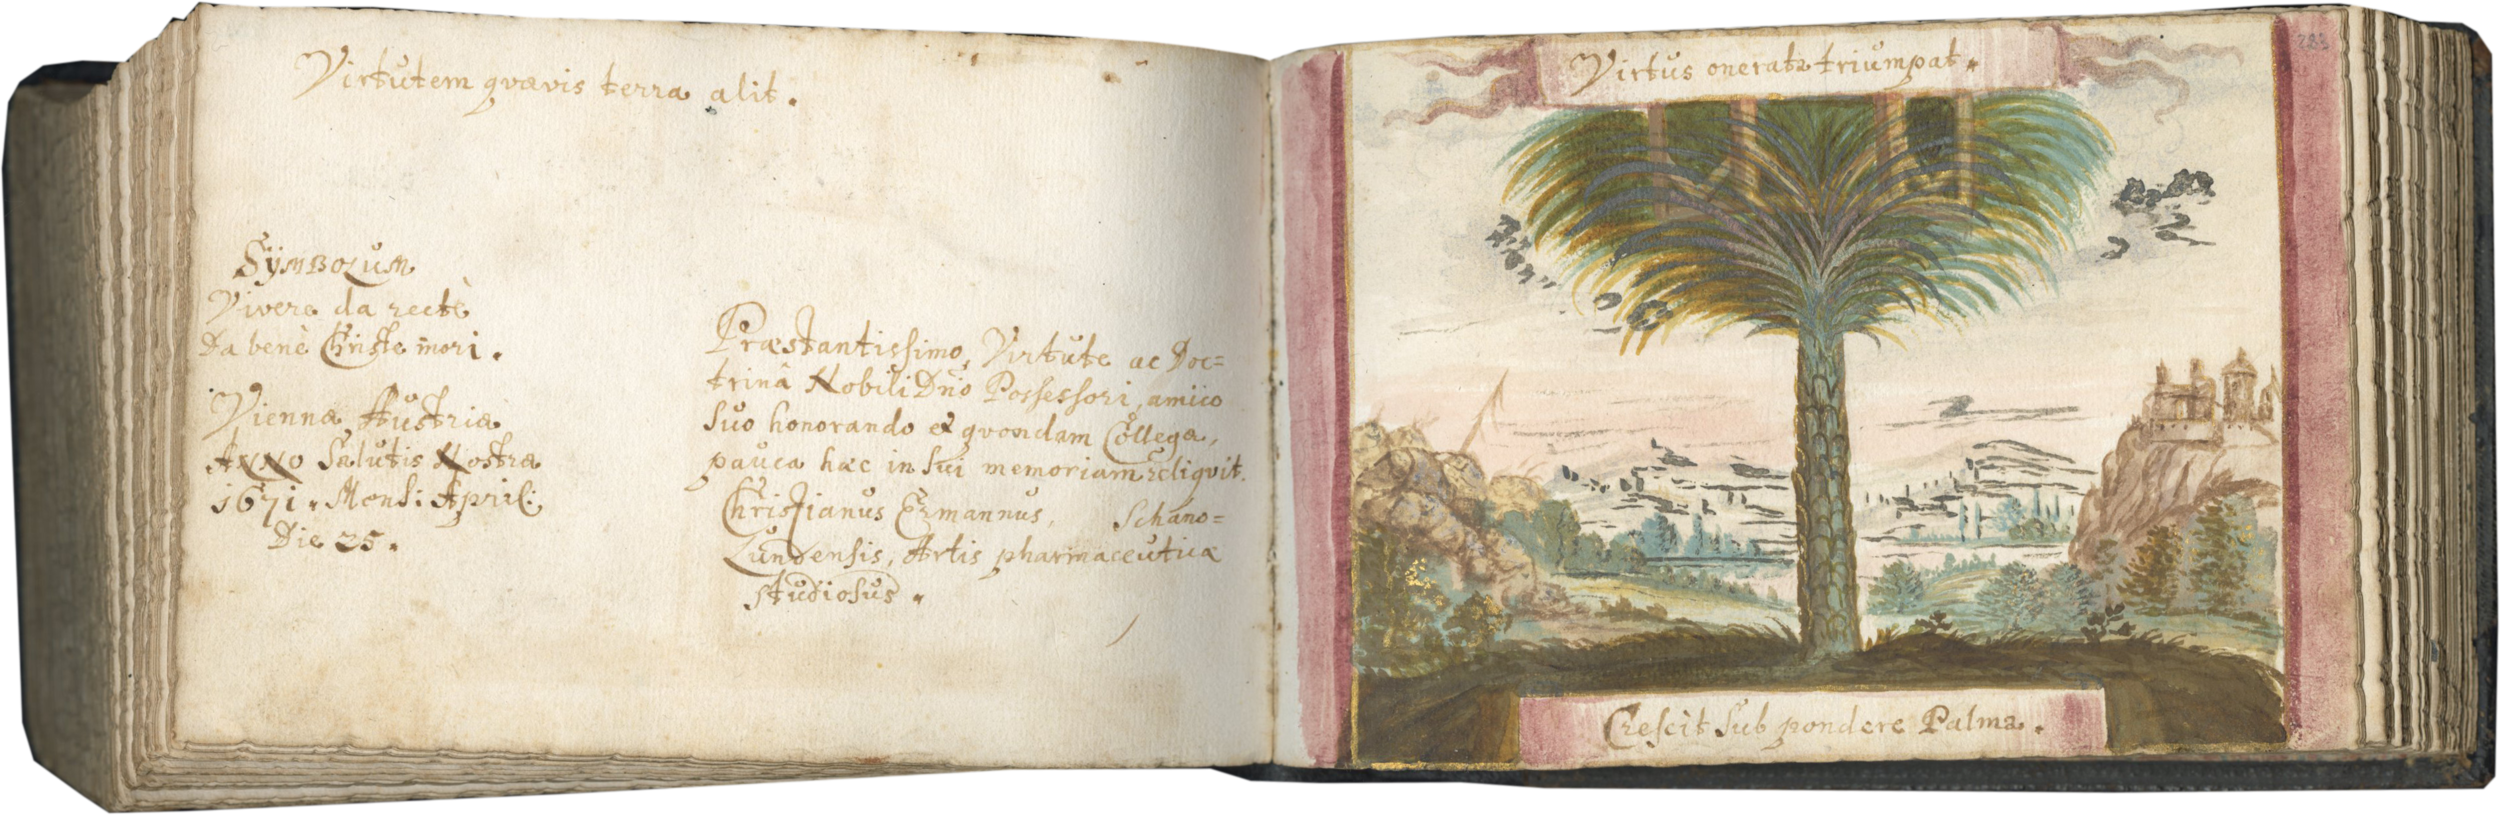 Virtutem qvævis terra alit.
Sÿmbolum
Vivere da rectè
Da benè Christe mori.
Viennæ Austriæ
Anno Salutis Nostræ
1671. Mens: April:
Die 25.
Præstantissimo, Virtute ac Doc=
trinâ Nobili Dño Possessori, amico
suo honorando et qvondam Collegæ,
pauca hæc in sui memoriam reliqvit.
Christianus Ermannus, Schano=
Lundensis, Artis pharmaceuticæ
studiosus.
Virtus onerata triumpat.
Crescit sub pondere Palma.